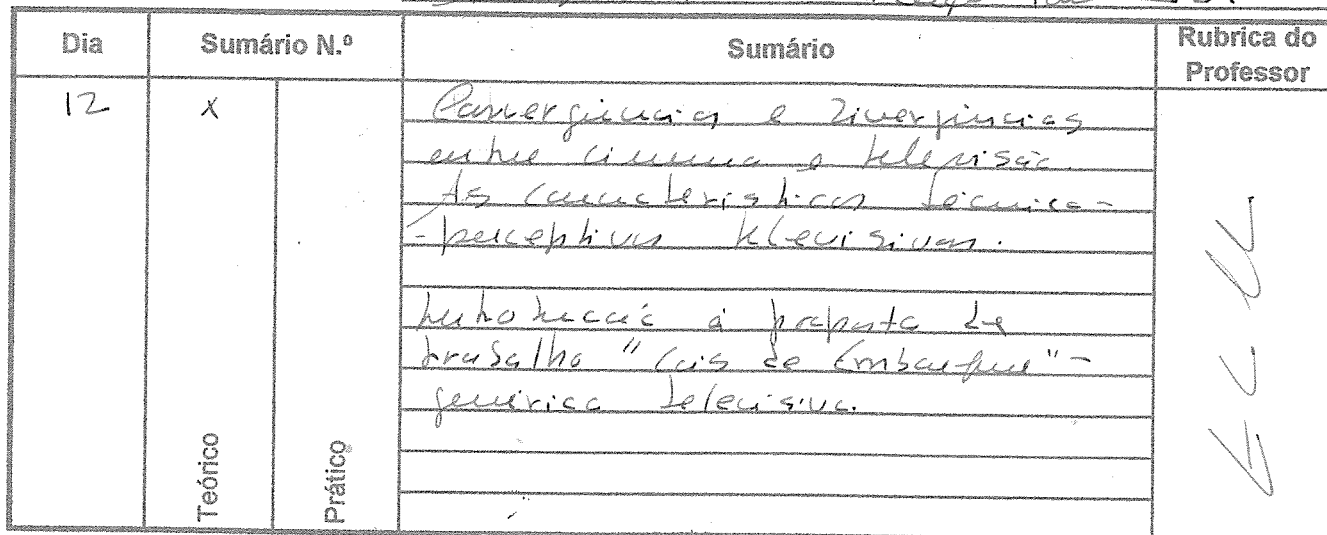 Dia Sumário N.º Sumário Rubrica do Professor
12 X Convergências e divergências
entre cinema e televisão.
As características técnico-
-perceptivas televisivas.
Introdução à proposta de
trabalho "Cais de Embarque" -
genérico televisivo.
Teórico
Prático